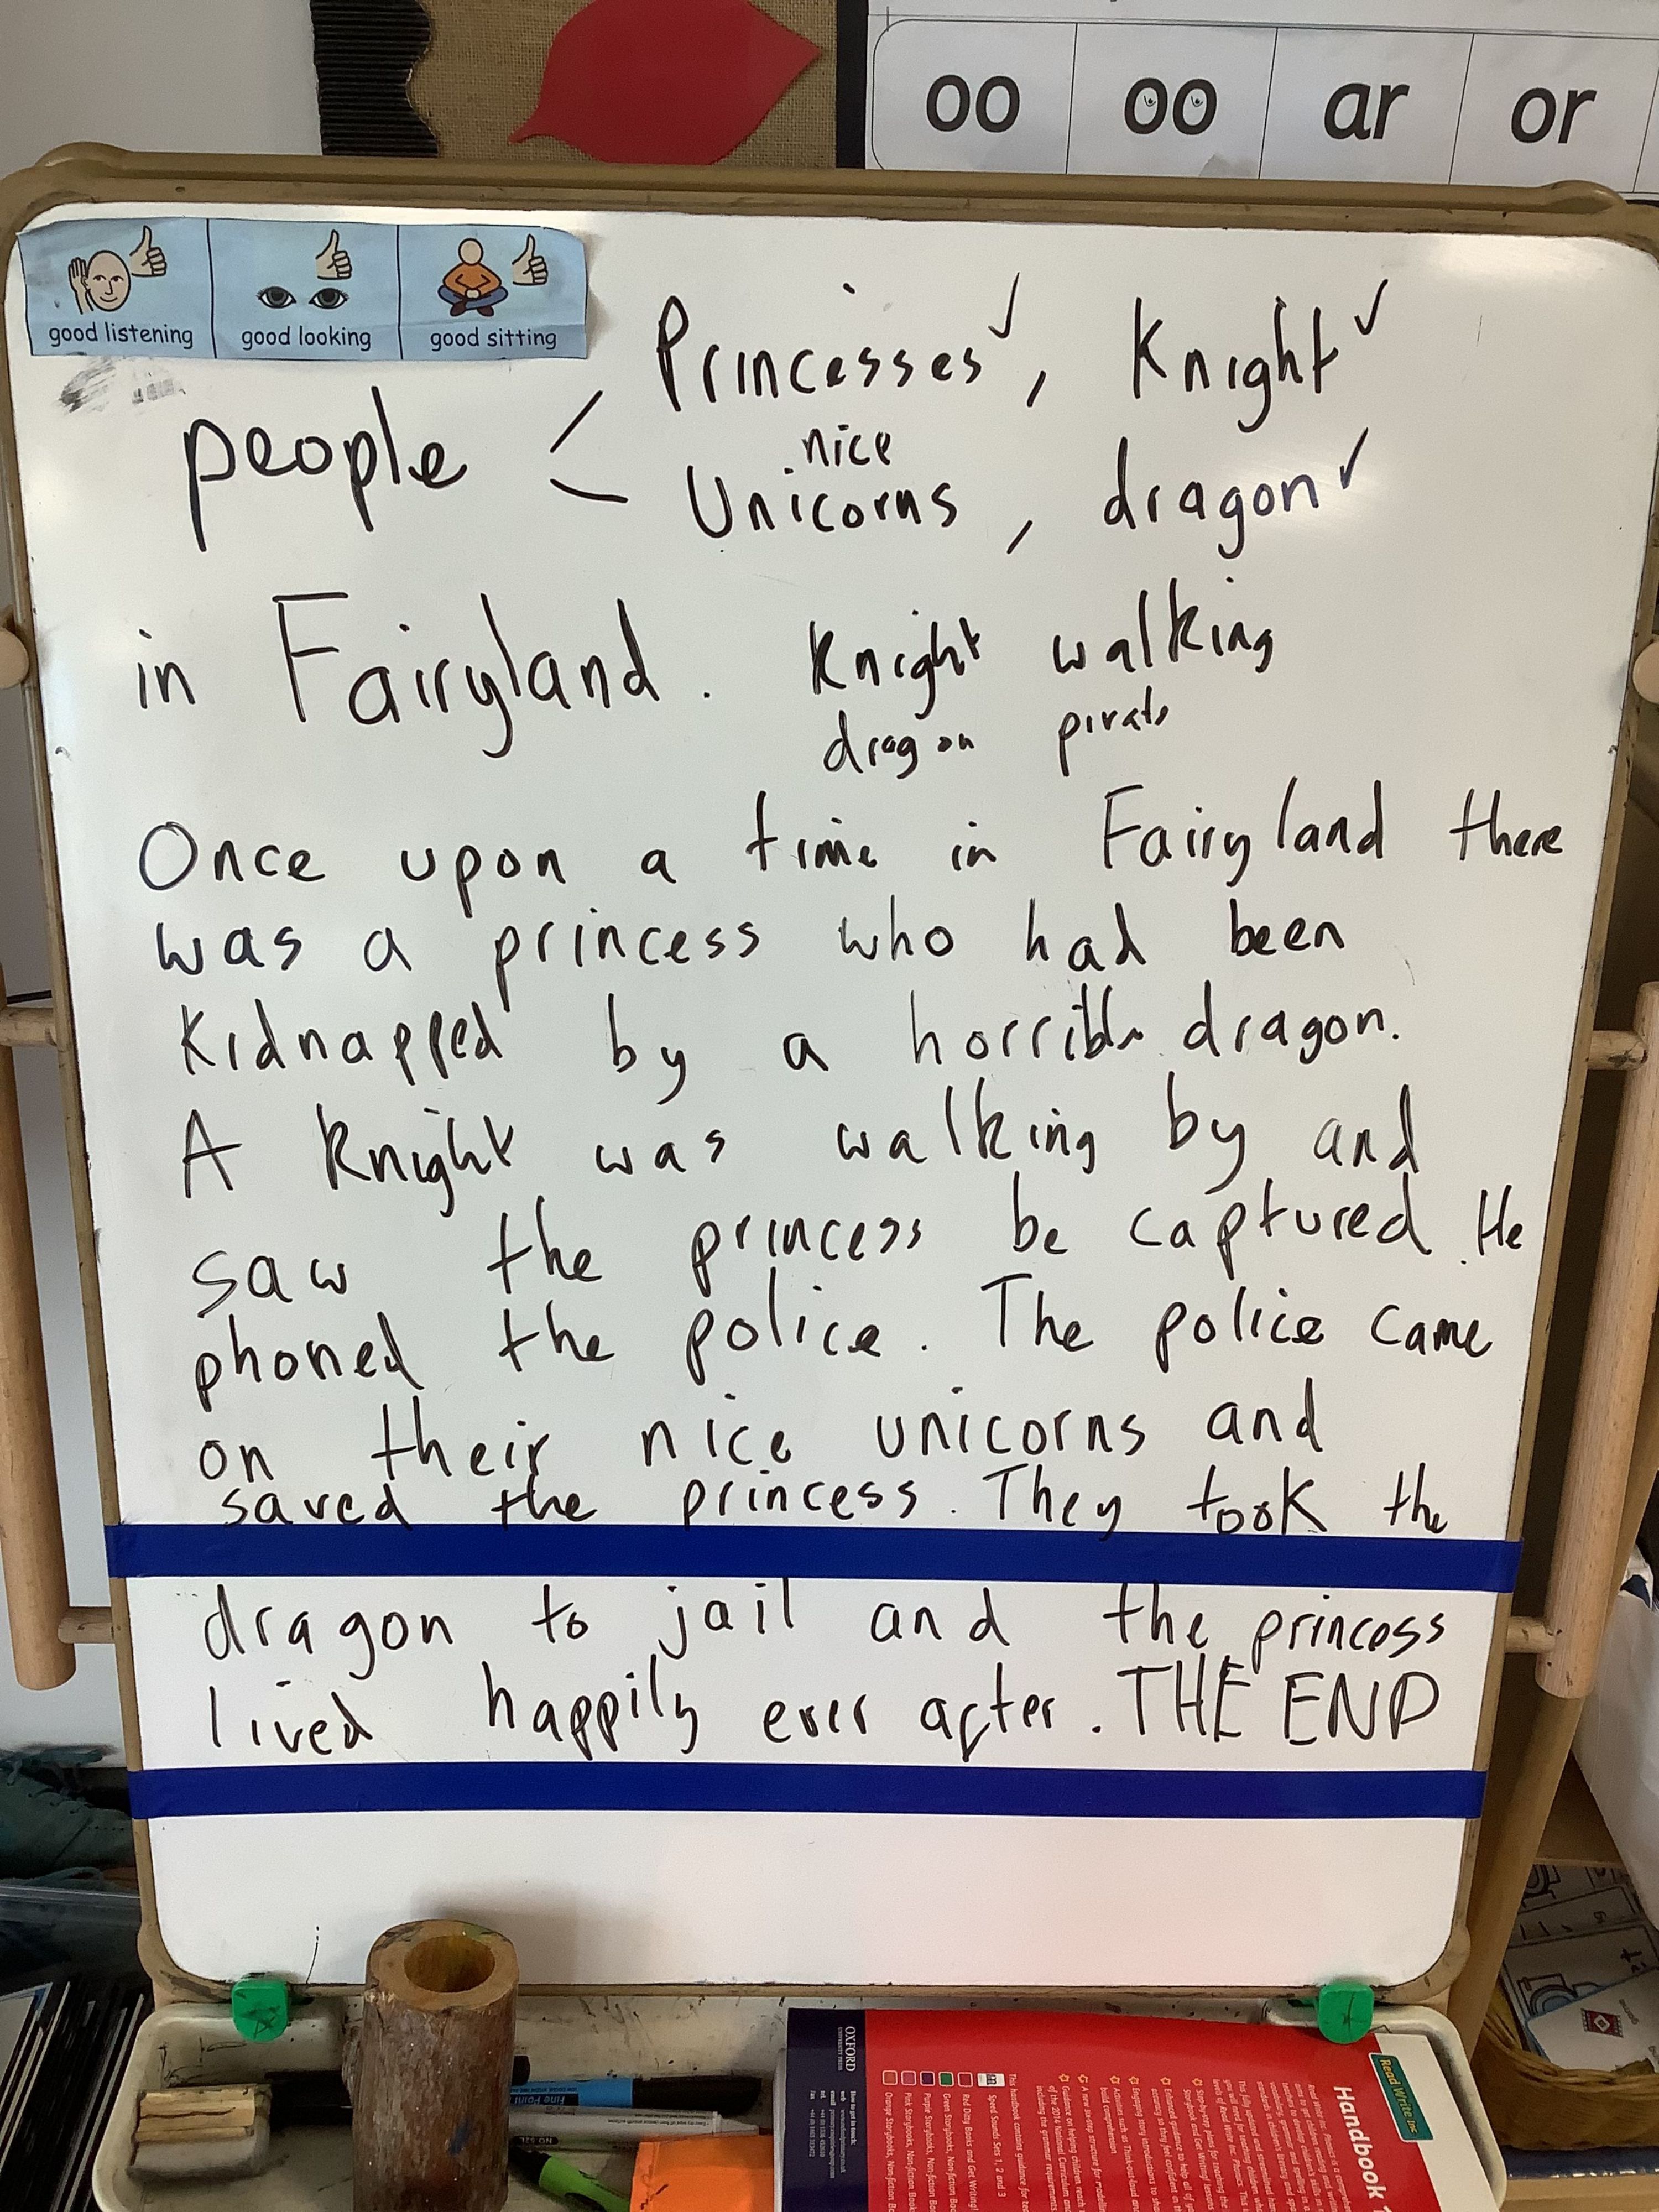 oo oo ar or
good listening good looking good sitting
Princesses ✓, Knight ✓
people < nice
Unicorns, dragon ✓
in Fairyland. Knight walking
dragon pirate
Once upon a time in Fairyland there
was a princess who had been
Kidnapped by a horrible dragon.
A Knight was walking by and
saw the princess be captured. He
phoned the police. The police came
on their nice unicorns and
saved the princess. They took the
dragon to jail and the princess
lived happily ever after. THE END
Read Write Inc.
Handbook
OXFORD
UNIVERSITY PRESS
Speed Sounds Sets 1, 2 and 3
Fine Point